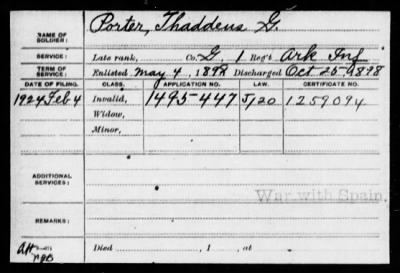 NAME OF SOLDIER: Porter, Thaddeus G.
SERVICE: Late rank, Co. G, 1 Reg't Ark Inf
TERM OF SERVICE: Enlisted May 4, 1898 Discharged Oct 25, 1898
DATE OF FILING. CLASS. APPLICATION NO. LAW. CERTIFICATE NO.
1924 Feb 4 Invalid, 1495-447 J/20 1259094
Widow,
Minor,
ADDITIONAL SERVICES:
War with Spain.
REMARKS:
Died , 1 , at